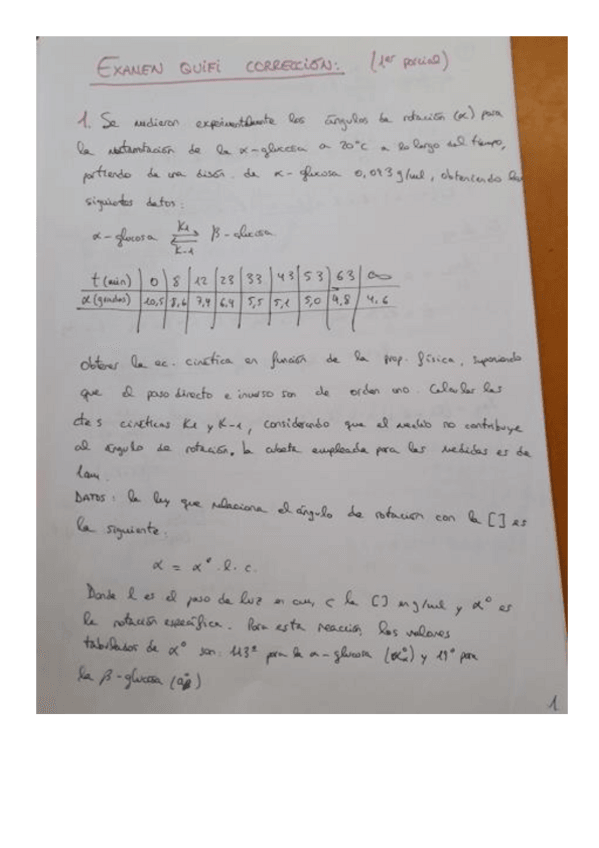 EXAMEN QUIFI CORRECCIÓN: (1er parcial)
1. Se midieron experimentalmente los ángulos de rotación (α) para
la mutarrotación de la α-glucosa a 20°C a lo largo del tiempo,
partiendo de una disón. de α-glucosa 0,093 g/ml, obteniendo los
siguientes datos:
α-glucosa K1 K-1 β-glucosa
t(min) 0 8 12 23 33 43 53 63 ∞
α(grados) 10,5 8,6 7,9 6,4 5,5 5,1 5,0 4,8 4,6
obtener la ec. cinética en función de la prop. física, suponiendo
que el paso directo e inverso son de orden uno. Calcular las
ctes cinéticas K1 y K-1, considerando que el medio no contribuye
al ángulo de rotación. La cubeta empleada para las medidas es de
1cm.
DATOS: la ley que relaciona el ángulo de rotación con la [] es
la siguiente:
α = α°. l. c.
Donde l es el paso de luz en cm, c la [] en g/ml y α° es
la rotación específica. Para esta reacción los valores
tabulados de α° son: 113° para la α-glucosa (α°α) y 19° para
la β-glucosa (α°β)
1